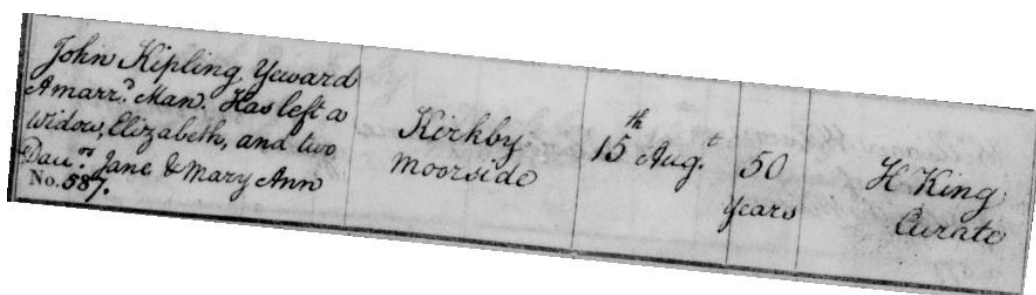 John Kipling Yeward
A marr.d Man. Has left a
widow, Elizabeth, and two
Dau.rs Jane & Mary Ann
No. 587.
Kirkby
moorside
15th Aug.t
50
years
H King
Curate